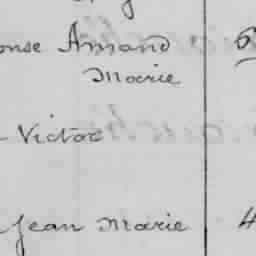 onse Amand
Marie
Victor
Jean Marie 4